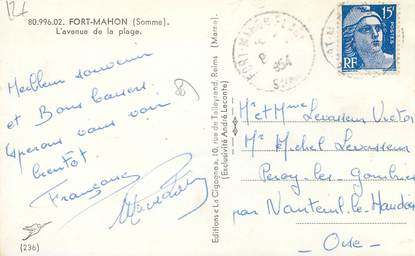 80.996.02. FORT-MAHON (Somme).
L'avenue de la plage.
Meilleur souvenir
et Bons baisers.
Espérons vous voir
bientôt.
Françoise
(236)
Editions « La Cigogne », 10, rue de Talleyrand, Reims (Marne)
(Exclusivité André Leconte)
FORT-MAHON
8
1954
15F
POSTES
RF
Mr et Mme Levasseur Victor
Mr Michel Levasseur
Peroy les Gombries
par Nanteuil-le-Haudouin
Oise